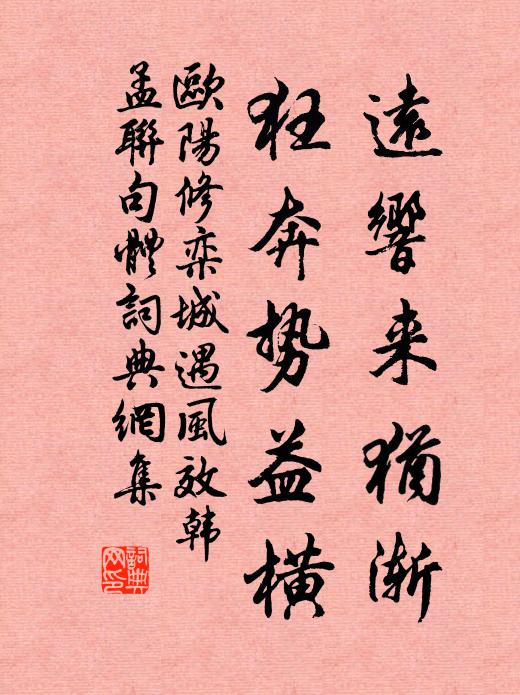 遠響来猶漸
狂奔势益橫
歐陽修栾城遇風效韩
孟聯句體詞典網集
詞典网印